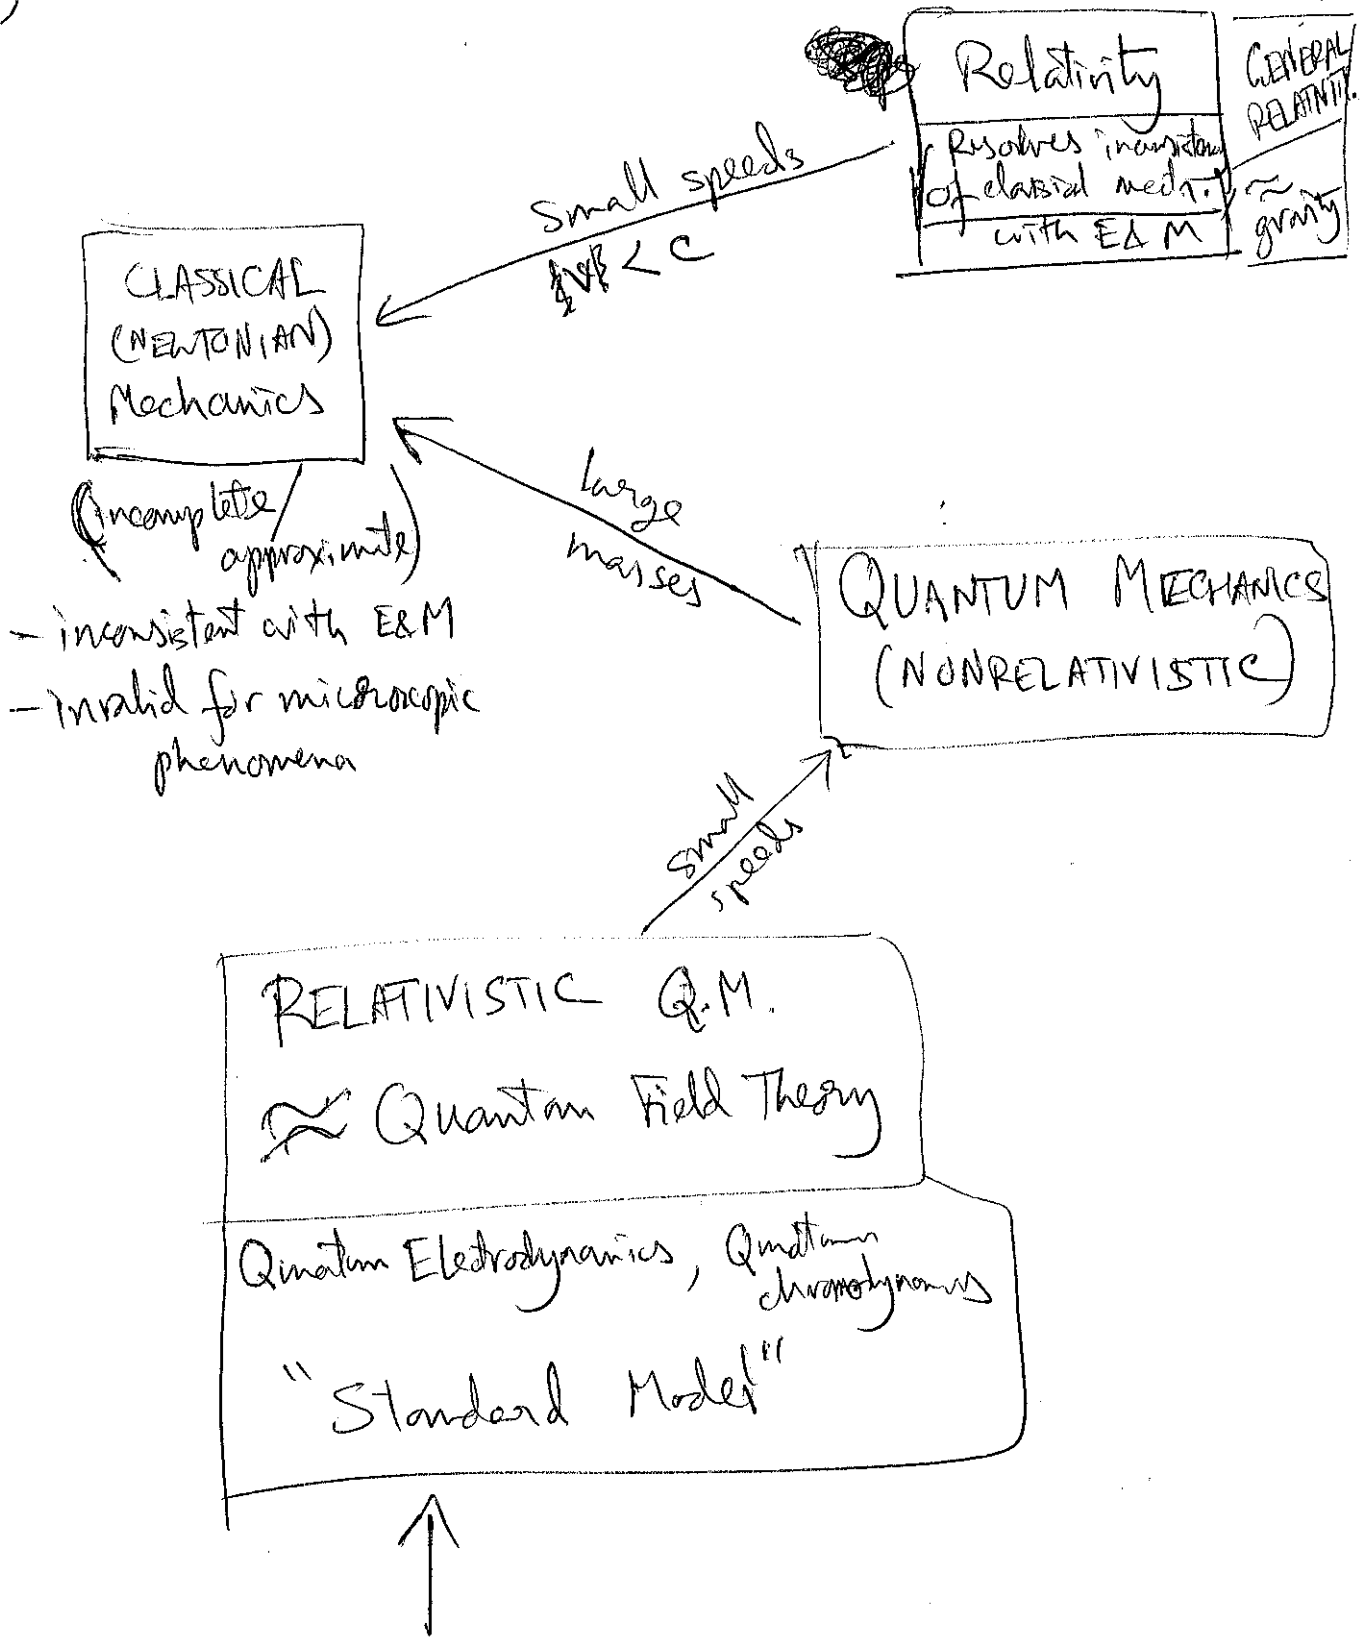 Relativity
Resolves inconsistency
of classical mech.
with E&M
GENERAL
RELATIVITY
≈
gravity
small speeds
|v| < c
CLASSICAL
(NEWTONIAN)
Mechanics
(incomplete /
approximate)
- inconsistent with E&M
- invalid for microscopic
phenomena
large
masses
QUANTUM MECHANICS
(NONRELATIVISTIC)
small
speeds
RELATIVISTIC Q.M.
≈ Quantum Field Theory
Quantum Electrodynamics, Quantum
chromodynamics
"Standard Model"